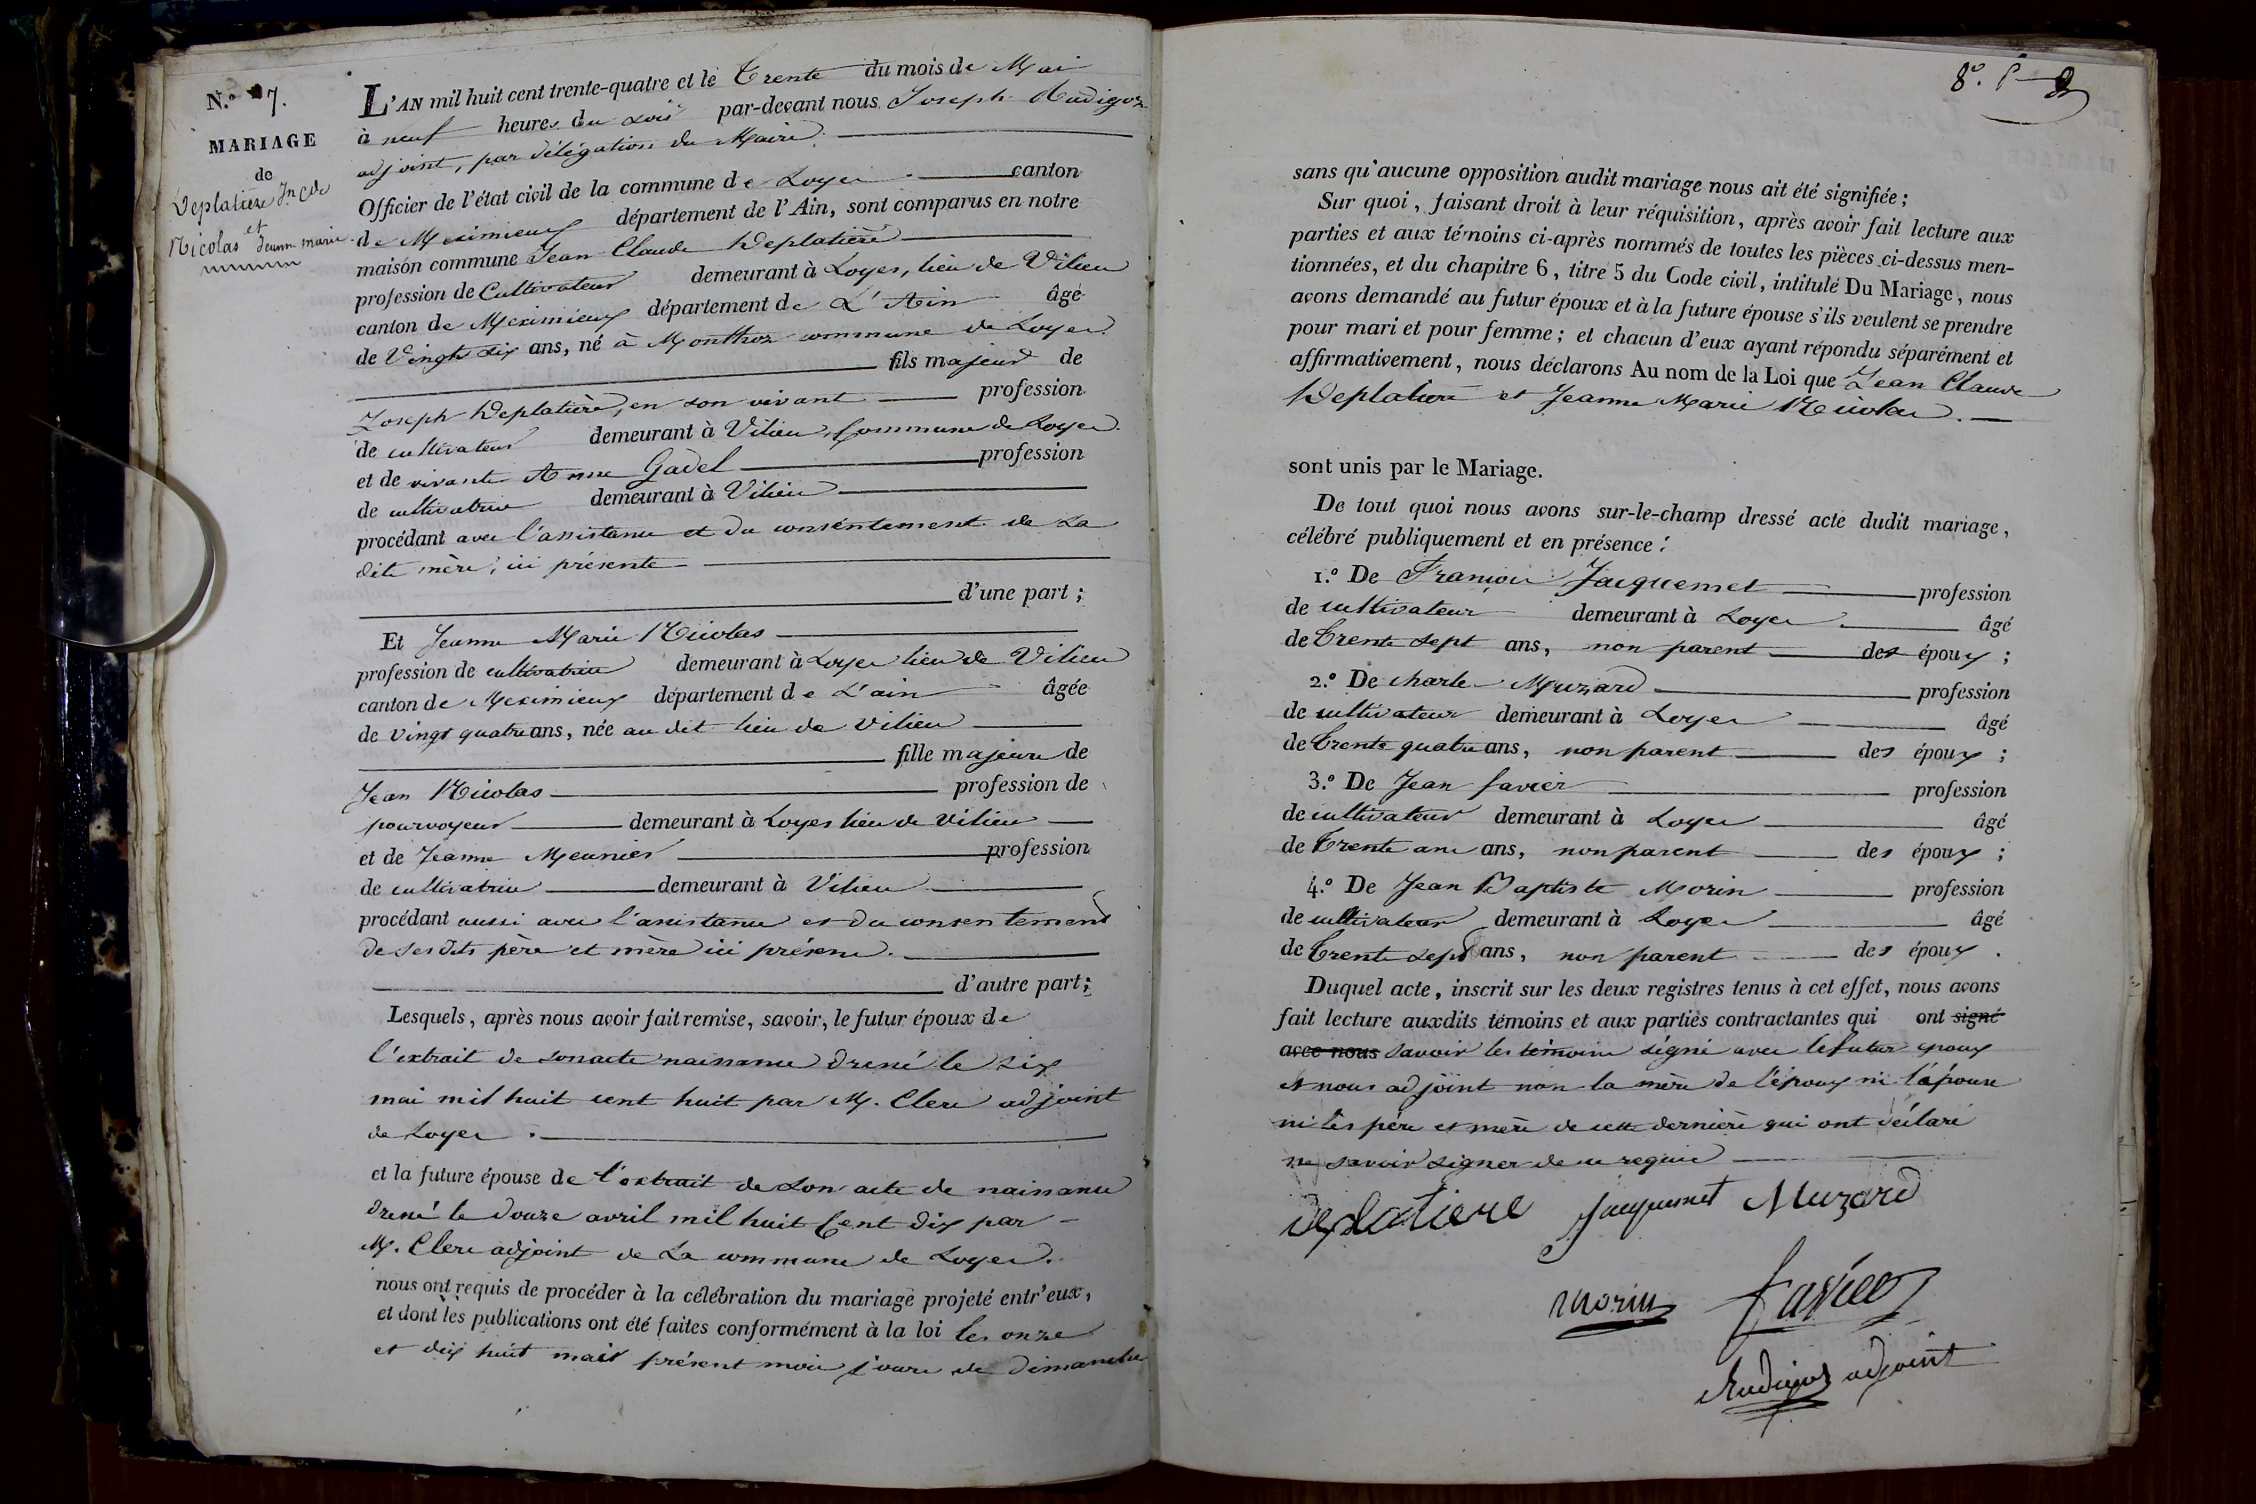 N.º 7.
MARIAGE
de
Deplatière Jn Cde
et
Nicolas Jeanne marie
L'AN mil huit cent trente-quatre et le Trente du mois de Mai
à neuf heures du soir par-devant nous Joseph Rudigoz
adjoint, par délégation du Maire.
Officier de l'état civil de la commune de Loyes canton
de Meximieux département de l'Ain, sont comparus en notre
maison commune Jean Claude Deplatière
profession de Cultivateur demeurant à Loyes, lieu de Vilieu
canton de Meximieux département de L'Ain âgé
de Vingt six ans, né à Monthoz commune de Loyes.
fils majeur de
Joseph Deplatière, en son vivant profession
de cultivateur demeurant à Vilieu, Commune de Loyes.
et de vivante Anne Gadel profession
de cultivatrice demeurant à Vilieu
procédant avec l'assistance et du consentement de la
dite mère, ici présente
d'une part ;
Et Jeanne Marie Nicolas
profession de cultivatrice demeurant à Loyes lieu de Vilieu
canton de Meximieux département de L'ain âgée
de vingt quatre ans, née au dit lieu de vilieu
fille majeure de
Jean Nicolas profession de
pourvoyeur demeurant à Loyes lieu de vilieu
et de Jeanne Meunier profession
de cultivatrice demeurant à Vilieu
procédant aussi avec l'assistance et du consentement
de ses dits père et mère ici présens.
d'autre part ;
Lesquels, après nous avoir fait remise, savoir, le futur époux de
l'extrait de son acte naissance dressé le six
mai mil huit cent huit par M. Clerc adjoint
de Loyes.
et la future épouse de l'extrait de son acte de naissance
dressé le douze avril mil huit Cent dix par
M. Clerc adjoint de la commune de Loyes.
nous ont requis de procéder à la célébration du mariage projeté entr'eux,
et dont les publications ont été faites conformément à la loi les onze
et dix huit mai présent mois jours de dimanche
8.
sans qu'aucune opposition audit mariage nous ait été signifiée ;
Sur quoi, faisant droit à leur réquisition, après avoir fait lecture aux
parties et aux témoins ci-après nommés de toutes les pièces ci-dessus men-
tionnées, et du chapitre 6, titre 5 du Code civil, intitulé Du Mariage, nous
avons demandé au futur époux et à la future épouse s'ils veulent se prendre
pour mari et pour femme ; et chacun d'eux ayant répondu séparément et
affirmativement, nous déclarons Au nom de la Loi que Jean Claude
Deplatière et Jeanne Marie Nicolas.
sont unis par le Mariage.
De tout quoi nous avons sur-le-champ dressé acte dudit mariage,
célébré publiquement et en présence :
1.º De François Jacquemet profession
de cultivateur demeurant à Loyes âgé
de Trente sept ans, non parent des époux ;
2.º De charles Muzard profession
de cultivateur demeurant à Loyes âgé
de Trente quatre ans, non parent des époux ;
3.º De Jean favier profession
de cultivateur demeurant à Loyes âgé
de Trente ans, non parent des époux ;
4.º De Jean Baptiste Morin profession
de cultivateur demeurant à Loyes âgé
de Trente sept ans, non parent des époux.
Duquel acte, inscrit sur les deux registres tenus à cet effet, nous avons
fait lecture auxdits témoins et aux parties contractantes qui ont signé
avec nous savoir les témoins signé avec le futur epoux
et nous adjoint non la mère de l'époux ni l'épouse
ni les père et mère de cette dernière qui ont déclaré
ne savoir signer de ce requis
deplatiere Jacquemet Muzard
morin favier
Rudigoz adjoint